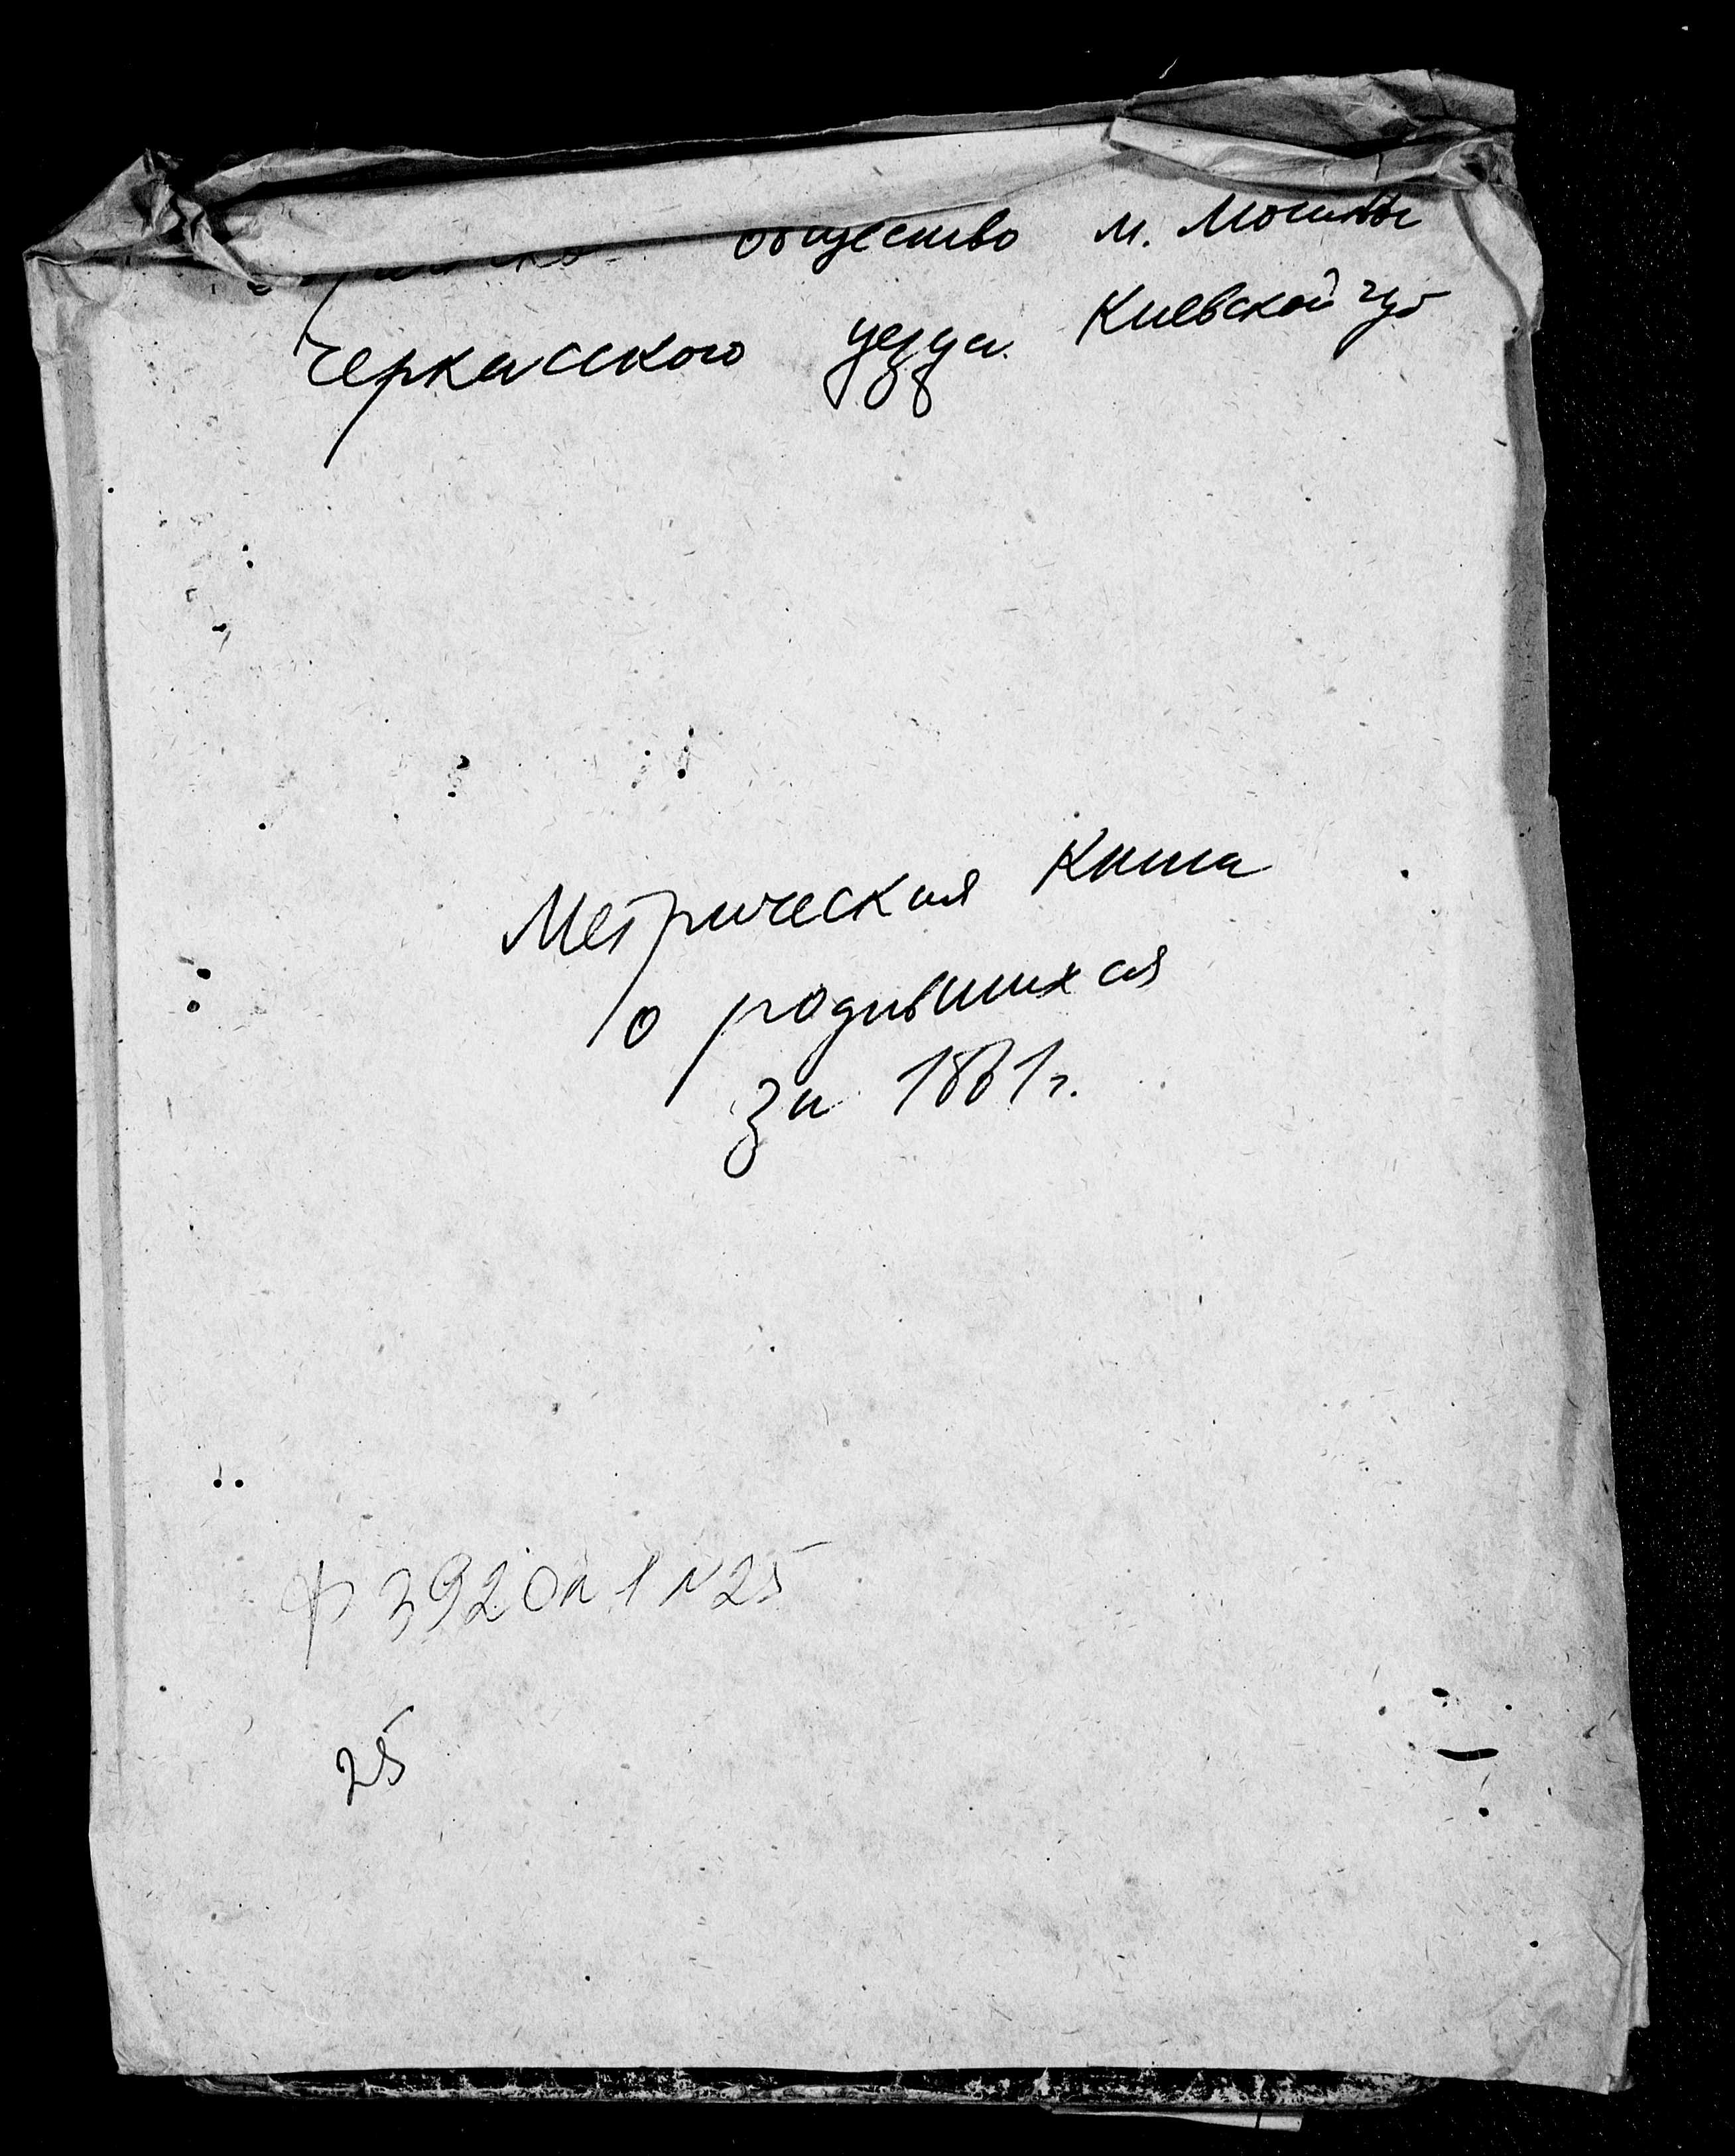 общество м. Мошны
Черкасского уезда Киевской губ
Метрическая Книга
о родившихся
за 1881г.
Ф 392 Оп 1 N25
25